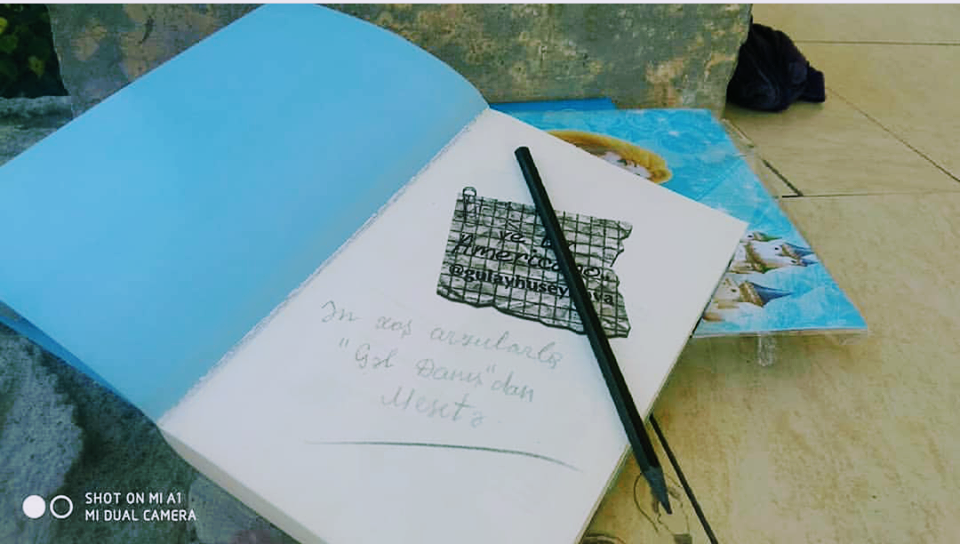 ve bir
Americano..
@gulayhuseynova
Ən xoş arzularla
"Gəl Danış"dan
Məsitə
SHOT ON MI A1
MI DUAL CAMERA